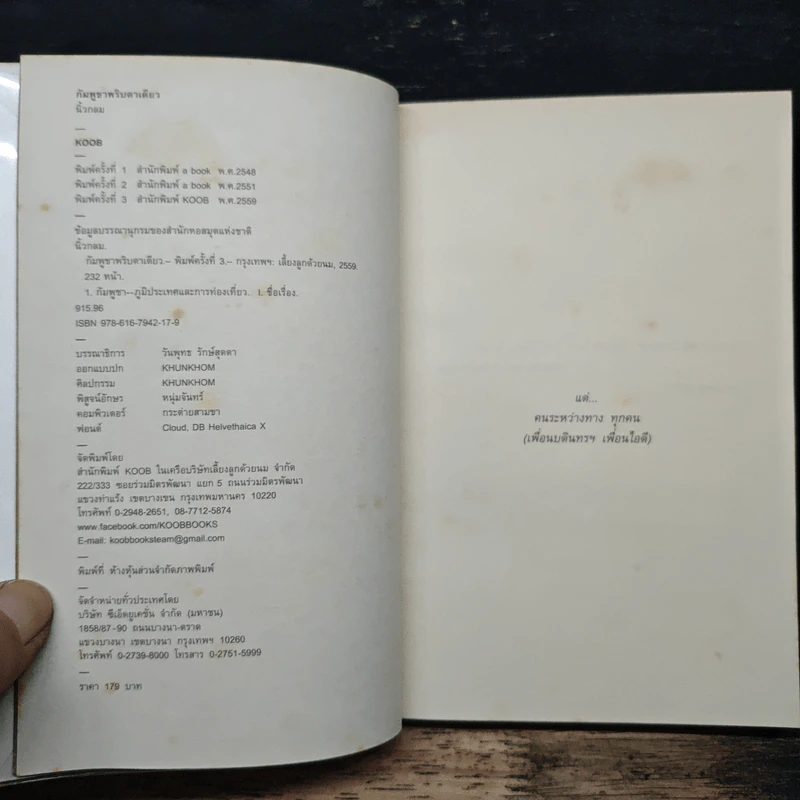 กัมพูชาพริบตาเดียว
นิ้วกลม
—
KOOB
—
พิมพ์ครั้งที่ 1 สำนักพิมพ์ a book พ.ศ.2548
พิมพ์ครั้งที่ 2 สำนักพิมพ์ a book พ.ศ.2551
พิมพ์ครั้งที่ 3 สำนักพิมพ์ KOOB พ.ศ.2559
—
ข้อมูลบรรณานุกรมของสำนักหอสมุดแห่งชาติ
นิ้วกลม.
กัมพูชาพริบตาเดียว.– พิมพ์ครั้งที่ 3.– กรุงเทพฯ: เลี้ยงลูกด้วยนม, 2559.
232 หน้า.
1. กัมพูชา--ภูมิประเทศและการท่องเที่ยว. I. ชื่อเรื่อง.
915.96
ISBN 978-616-7942-17-9
—
บรรณาธิการ วันพุทธ รักษ์สุคตา
ออกแบบปก KHUNKHOM
ศิลปกรรม KHUNKHOM
พิสูจน์อักษร หนุ่มจันทร์
คอมพิวเตอร์ กระต่ายสามขา
ฟอนต์ Cloud, DB Helvethaica X
—
จัดพิมพ์โดย
สำนักพิมพ์ KOOB ในเครือบริษัทเลี้ยงลูกด้วยนม จำกัด
222/333 ซอยร่วมมิตรพัฒนา แยก 5 ถนนร่วมมิตรพัฒนา
แขวงท่าแร้ง เขตบางเขน กรุงเทพมหานคร 10220
โทรศัพท์ 0-2948-2651, 08-7712-5874
www.facebook.com/KOOBBOOKS
E-mail: koobbooksteam@gmail.com
—
พิมพ์ที่ ห้างหุ้นส่วนจำกัดภาพพิมพ์
—
จัดจำหน่ายทั่วประเทศโดย
บริษัท ซีเอ็ดยูเคชั่น จำกัด (มหาชน)
1856/87-90 ถนนบางนา-ตราด
แขวงบางนา เขตบางนา กรุงเทพฯ 10260
โทรศัพท์ 0-2739-8000 โทรสาร 0-2751-5999
—
ราคา 179 บาท
แด่...
คนระหว่างทาง ทุกคน
(เพื่อนบดินทรฯ เพื่อนไอดี)